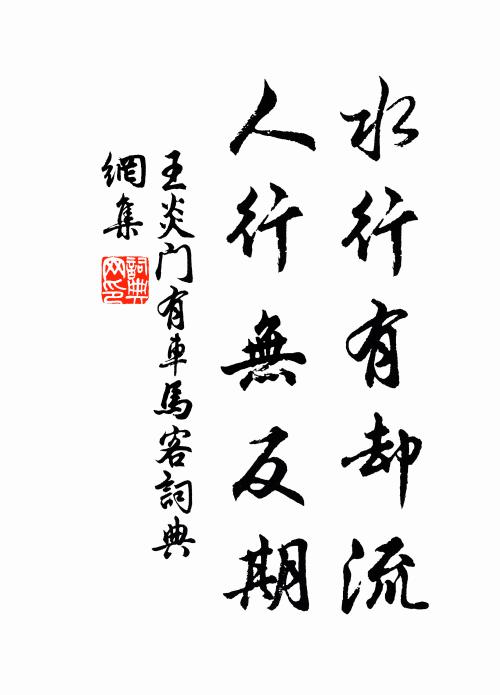 水行有却流
人行無反期
王炎門有車馬客詞典
網集
詞典
网印